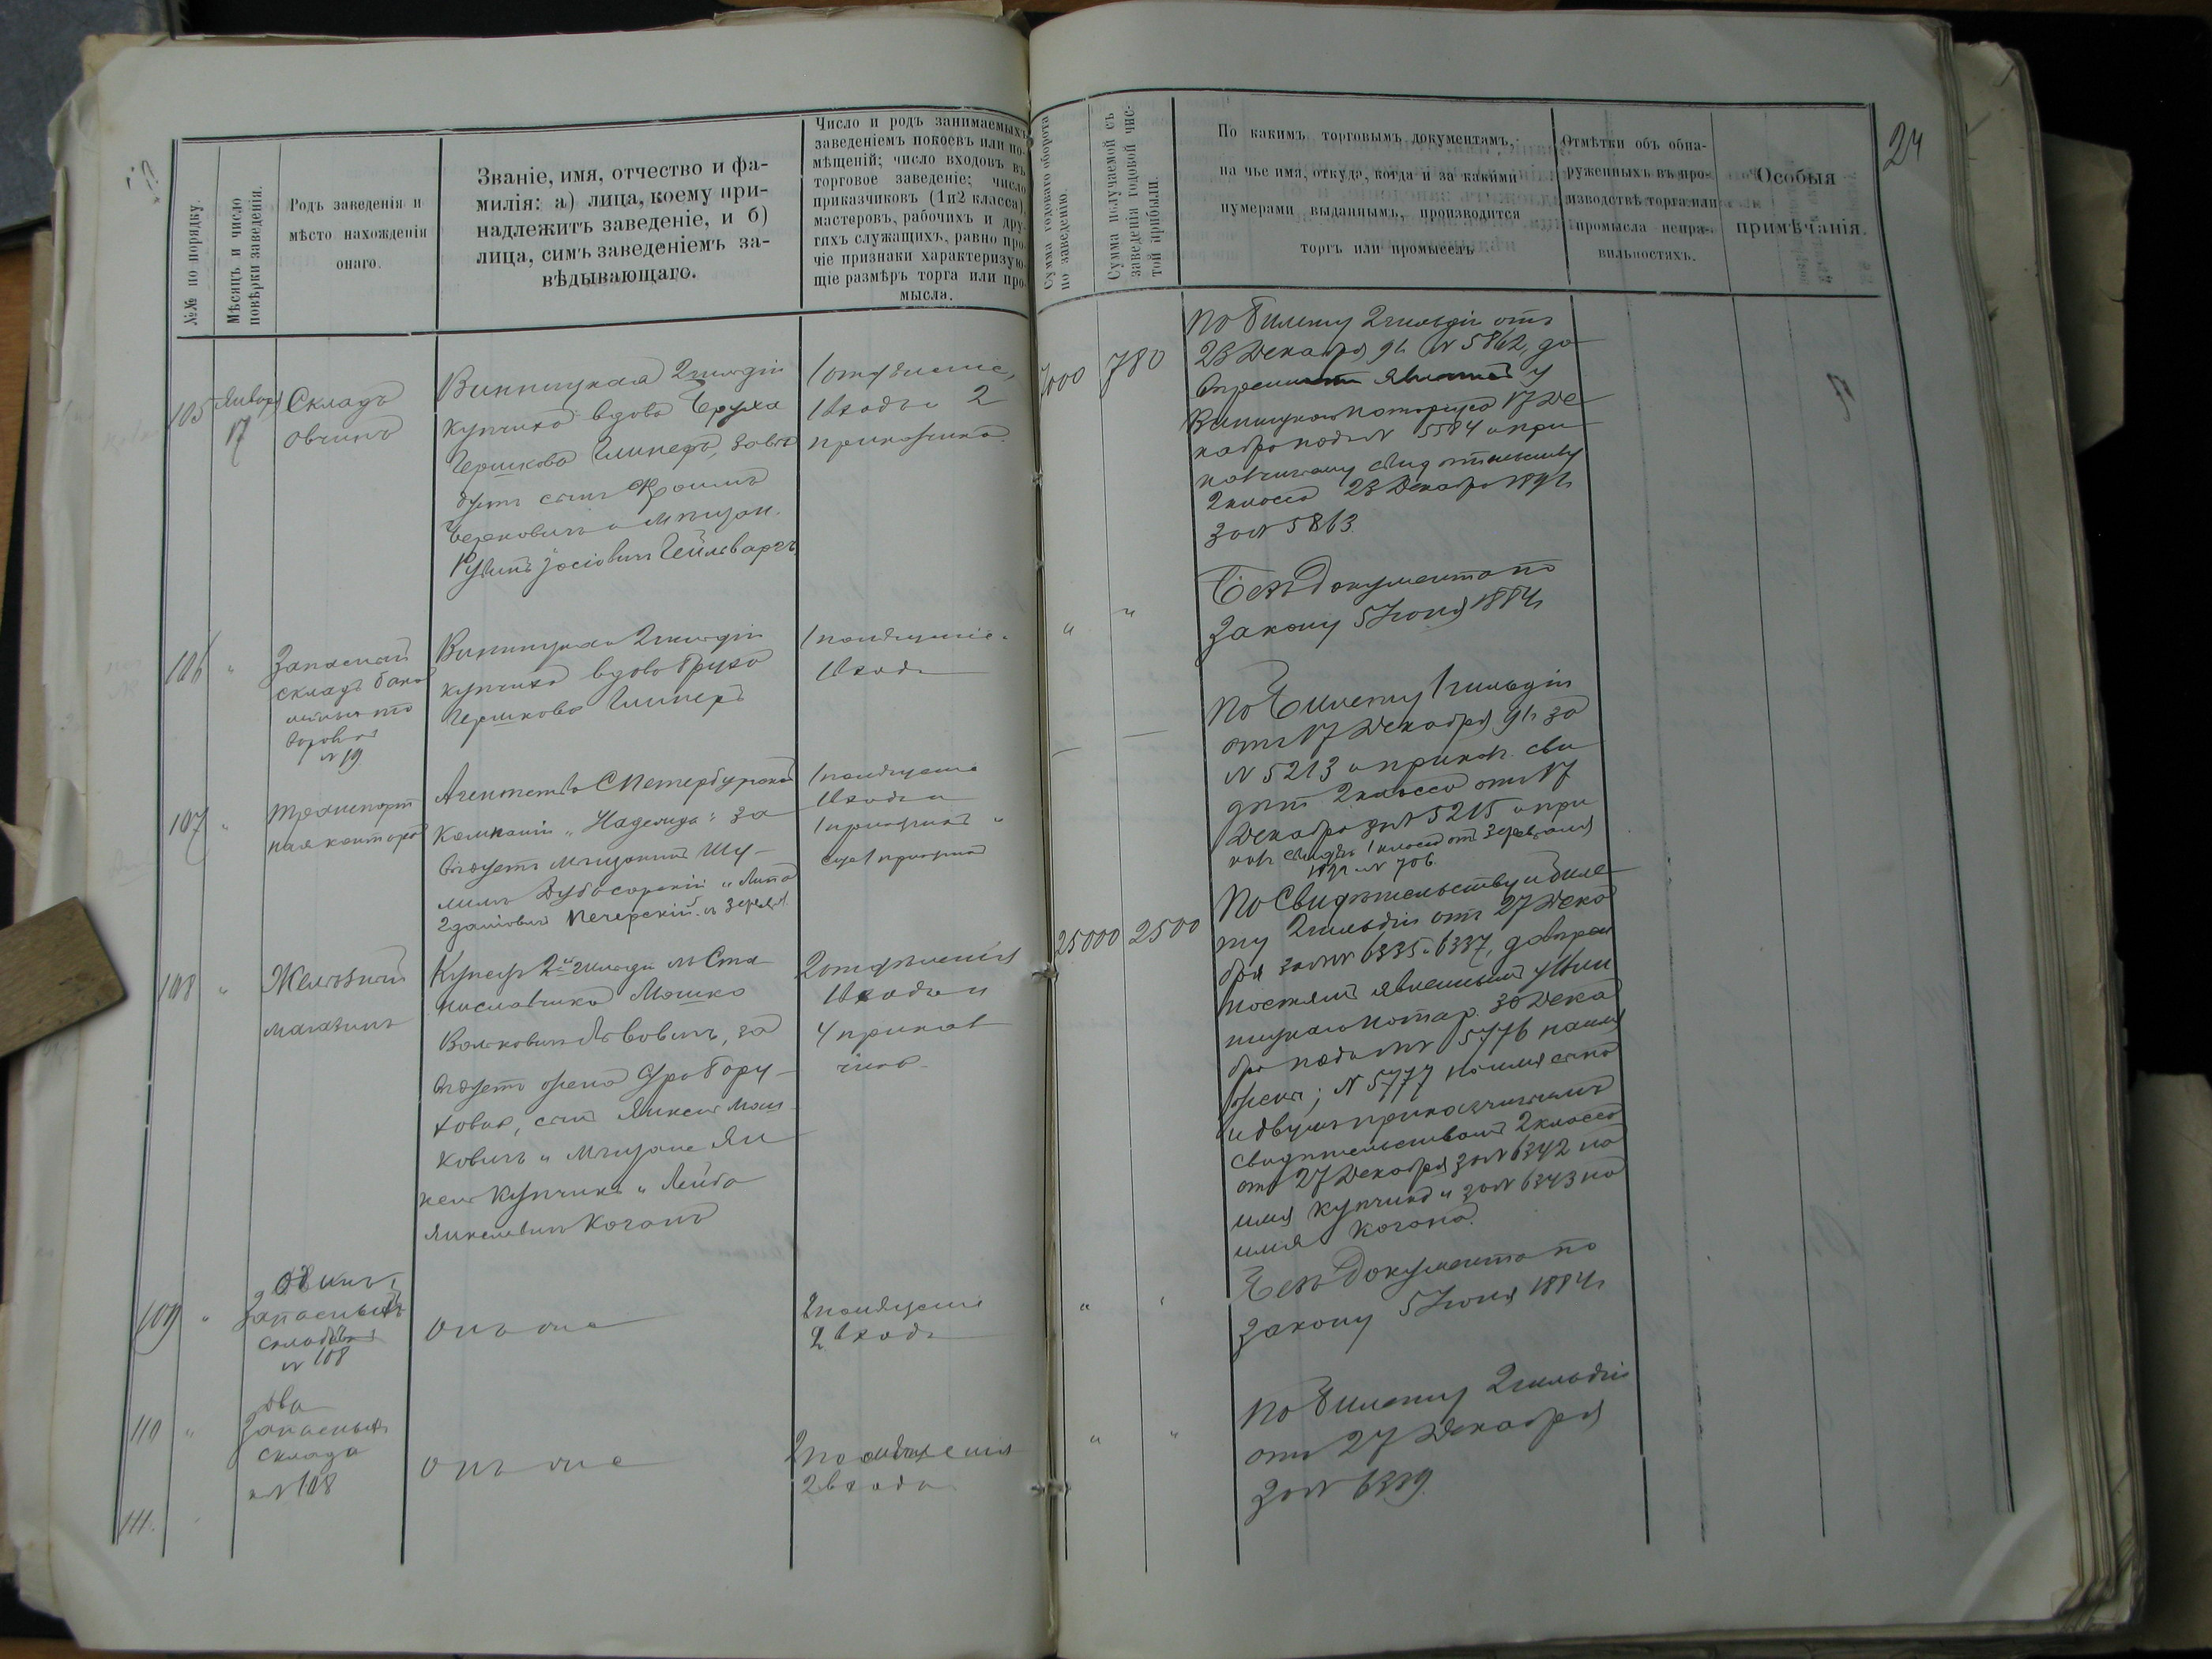 24
№№ по порядку.
Мѣсяцъ и число
повѣрки заведенія.
Родъ заведенія и
мѣсто нахожденія
онаго.
Званіе, имя, отчество и фа-
милія: а) лица, коему при-
надлежитъ заведеніе, и б)
лица, симъ заведеніемъ за-
вѣдывающаго.
Число и родъ занимаемыхъ
заведеніемъ покоевъ или по-
мѣщеній; число входовъ въ
торговое заведеніе; число
приказчиковъ (1 и 2 класса),
мастеровъ, рабочихъ и дру-
гихъ служащихъ, равно про-
чіе признаки характеризую-
щіе размѣръ торга или про-
мысла.
Сумма годоваго оборота
по заведенію.
Сумма получаемой съ
заведенія годовой чис-
той прибыли.
По какимъ торговымъ документамъ,
на чье имя, откуда, когда и за какими
нумерами выданнымъ, производится
торгъ или промыселъ
Отмѣтки объ обна-
руженныхъ въ про-
изводствѣ торга или
промысла непра-
вильностяхъ.
Особыя
примѣчанія.
105
Января
17
Складъ
овчинъ
Винницкая 2 гильдіи
купчиха вдова
Гершкова завѣ
дуетъ сынъ Фроимъ
Берковичъ и мѣщан.
Рувинъ Іосіовичъ Гейльваргъ
1 отдѣленіе,
1 входъ и 2
приказчика
7000
780
По билету 2 гильдіи отъ
23 Декабря 91 г. № 5862, до
Винницкаго нотаріуса 17 Де
кабря подъ № 5584 и при
кащичьему свид
2 класса 23 Декабря 1891 г.
за № 5863.
106
"
Запасный
складъ
№ 19
Винницкая 2 гильдіи
купчиха вдова
Гершкова
1 помѣщеніе
1 входъ
"
"
Безъ документа по
закону 5 Іюня 1884 г.
107
"
Транспорт
ная контора
Агентство С Петербургской
Компаніи "Надежда" за
вѣдуетъ мѣщанинъ Шу-
лимъ Дубосарскій и
Печерскій
1 помѣщеніе
1 входъ и
1 приказчикъ
еще 1 приказчикъ
—
—
По билету 1 гильдіи
отъ 17 Декабря 91 г. за
№ 5213 и прикащ. сви
дѣт. 2 класса отъ 17
Декабря за № 5215 и при
кащ. свидѣт. 1 класса отъ 3 февраля
№ 706
108
"
Желѣзный
магазинъ
Купецъ 2й гильдіи м. Ста
ниславчика Мошко
Вольковичъ Львовичъ, за
вѣдуетъ жена Сура Бору-
ховна, сынъ Янкель Мош
ковичъ и мѣщане Ян
кель Купчикъ и Лейба
Янкелевичъ Коганъ
2 отдѣленія
1 входъ и
4 приказ
чика
25000
2500
По свидѣтельству и биле
ту 2 гильдіи отъ 27 Дека
бря за №№ 6335 и 6337, довѣрен
ностямъ явленнымъ у Вин
ницкаго нотар. 30 Дека
бря подъ №№ 5776 на имя
жены; № 5777 на имя сына
и двумъ приказчичьимъ
свидѣтельствамъ 2 класса
отъ 27 Декабря за № 6342 на
имя Купчика и за № 6343 на
имя Когана.
109
"
Одинъ
Запасный
складъ
№ 108
Онъ же
2 помѣщенія
2 входа
"
"
Безъ документа по
закону 5 Іюня 1884 г.
110
"
Два
Запасныхъ
склада
№ 108
Онъ же
2 помѣщенія
2 входа
"
"
По билету 2 гильдіи
отъ 27 Декабря
за № 6339.
111.